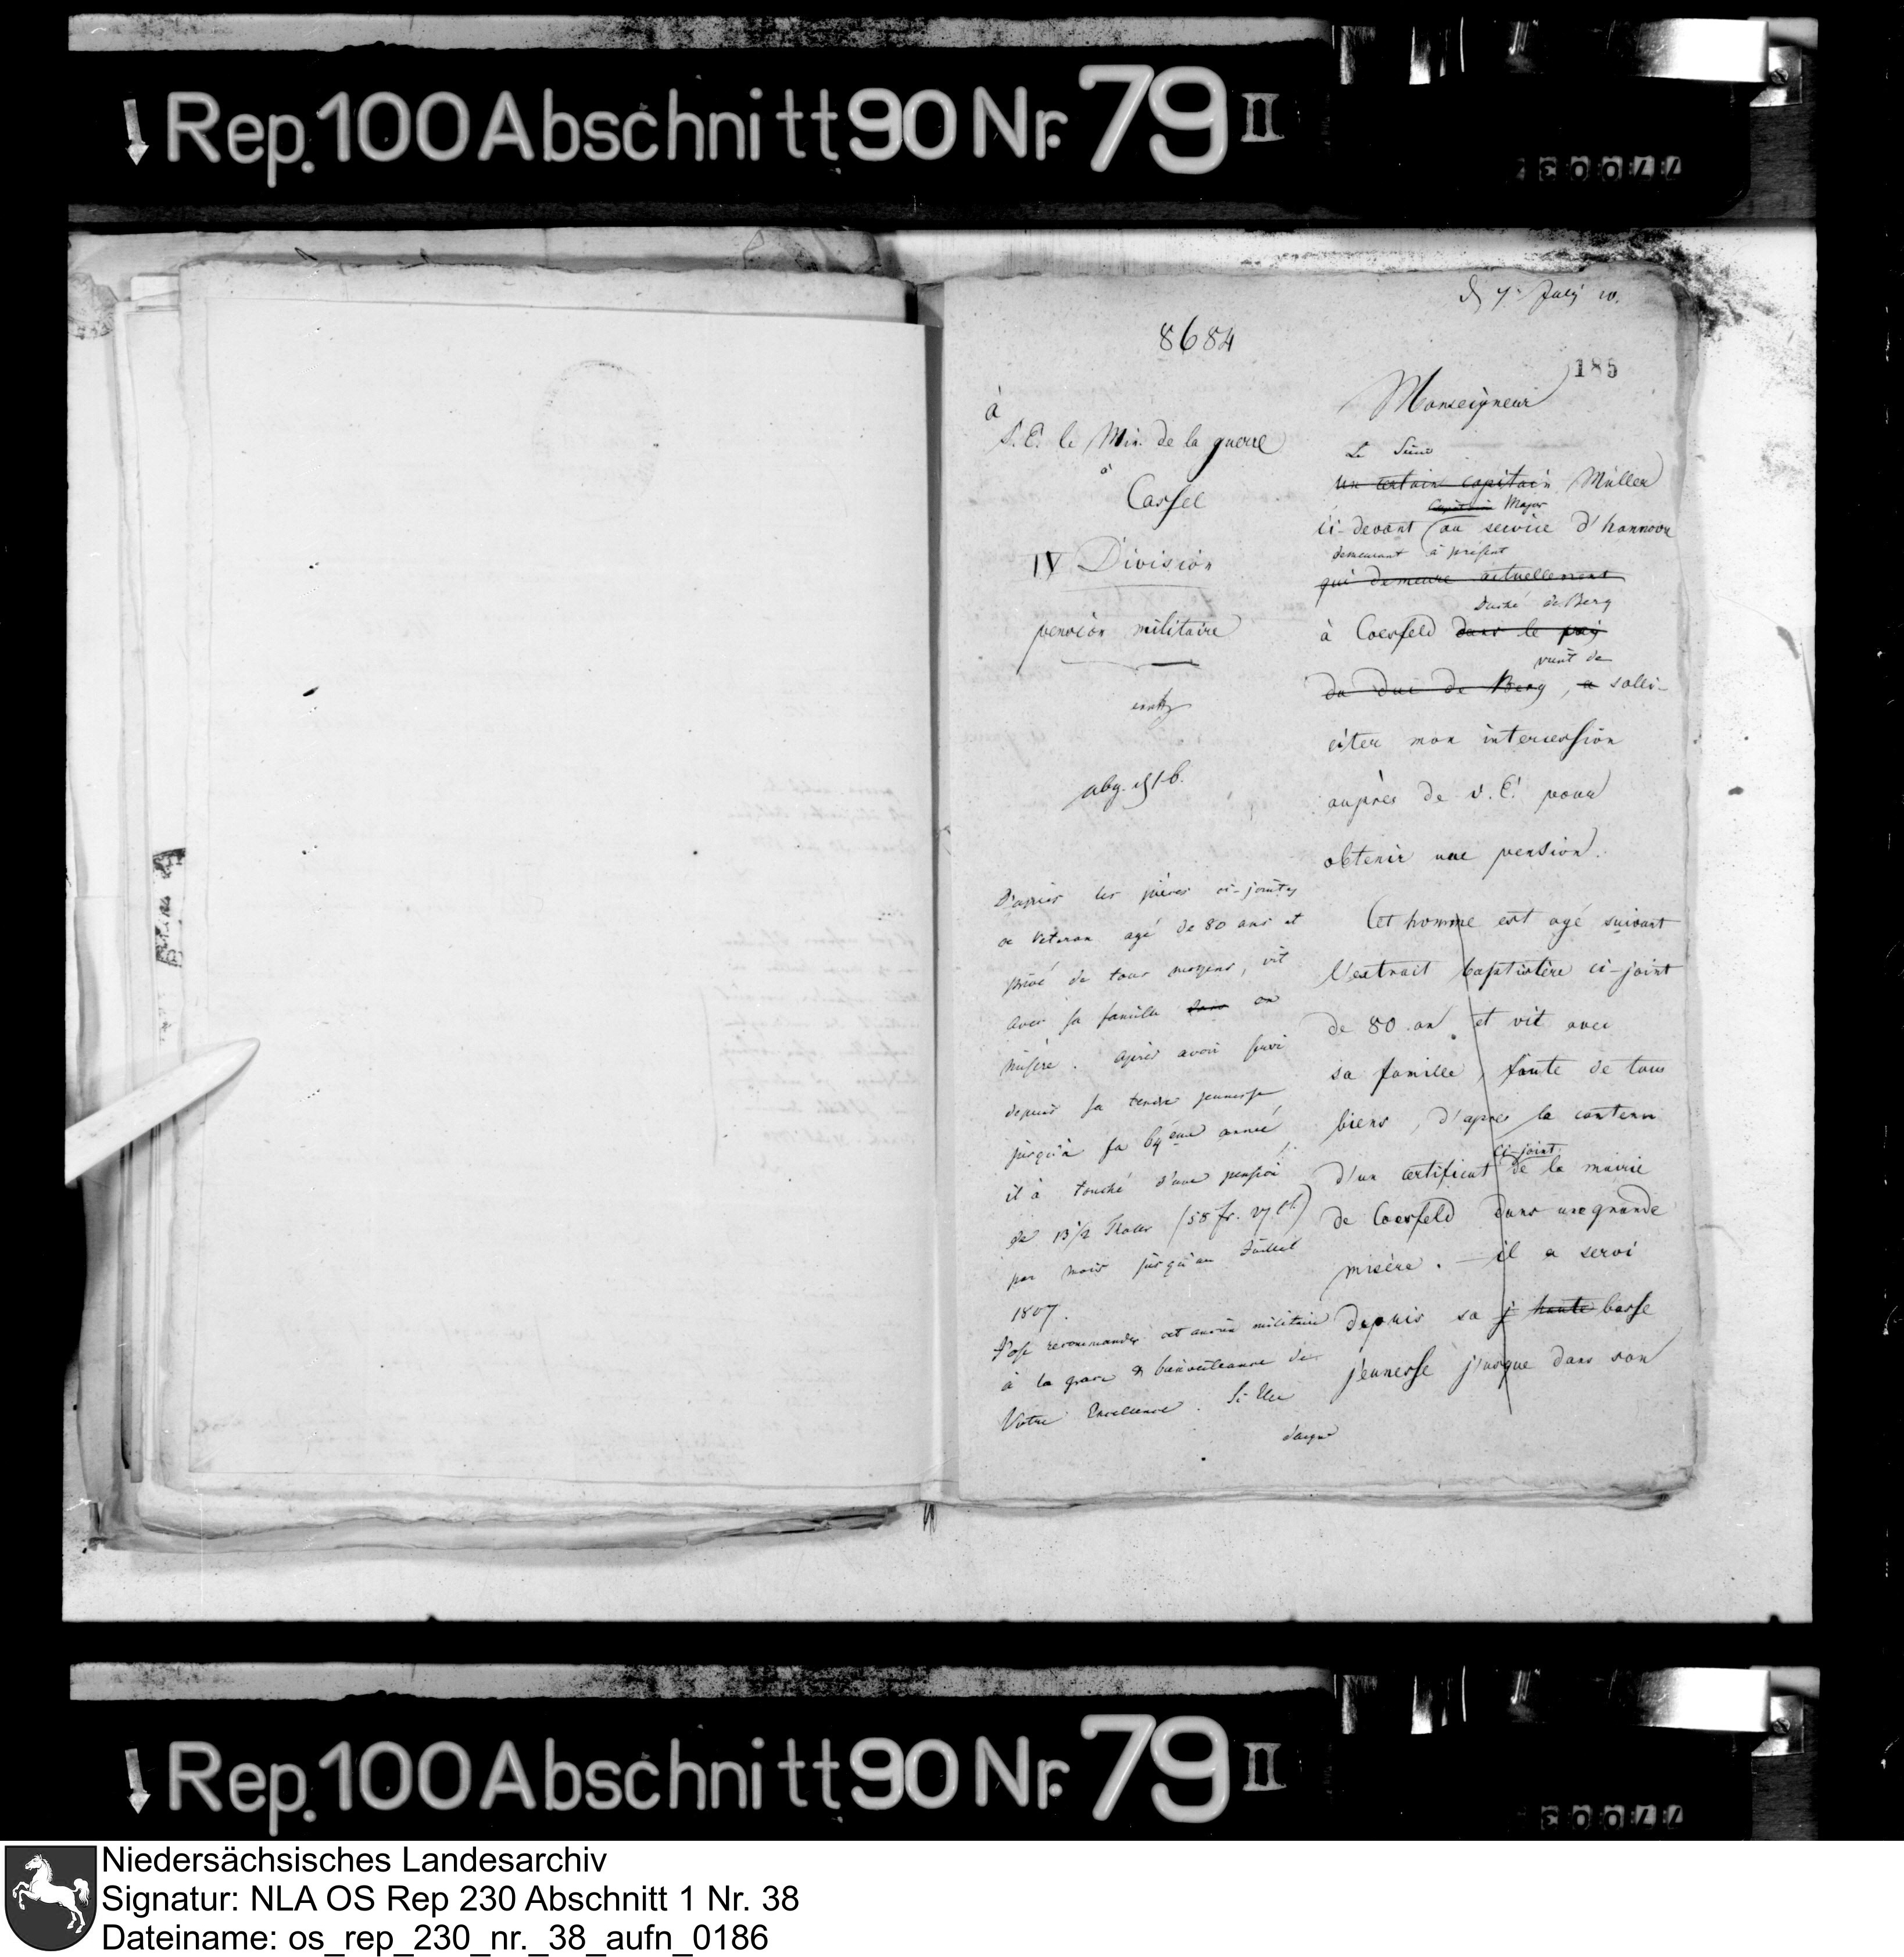 Rep. 100 Abschnitt 90 Nr. 79 II
77003
d 7. July 10.
8684
185
à
S. E. le Min. de la guerre
à
Cassel
IV Division
pension militaire
abg.
D'après les pièces ci-jointes
ce Veteran agé de 80 ans et
privé de tous moyens, vit
avec sa famille dans en
misère. après avoir servi
depuis sa tendre jeunesse
jusqu'à sa 64eme année,
il à touché d'une pension
de 13 1/2 Thaler (58 fr.
par mois jusqu'au Juillet
1807.
J'ose recommander cet ancien militaire
à la grace & bienveillance de
Votre Excellence. Si Elle
daigne
Monseigneur
Le Sieur
un certain capitain Müller
Capitain Major
ci-devant au service d'hannovre
demeurant à présent
qui demeure actuellement
Duché de Berg
à Coesfeld dans le pay
vient de
du Duc de Berg, a solli-
citer mon intercession
auprès de V. E. pour
obtenir une pension.
Cet homme est agé suivant
l'extrait baptistère ci-joint
de 80 an et vit avec
sa famille, faute de tous
biens, d'apres la contenu
ci-joint
d'un certificat de la mairie
de Coesfeld dans une grande
misère. - il a servi
depuis sa j haute basse
jeunesse jusque dans son
Rep. 100 Abschnitt 90 Nr. 79 II
77003
Niedersächsisches Landesarchiv
Signatur: NLA OS Rep 230 Abschnitt 1 Nr. 38
Dateiname: os_rep_230_nr._38_aufn_0186